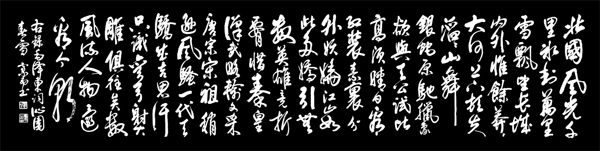 北國風光千
里冰封萬里
雪飄望長城
內外惟餘莽
大河上下頓失
滔滔山舞
銀蛇原馳蠟象
欲與天公試比
高須晴日看
紅裝素裹分
外妖嬈江山如
此多嬌引無
數英雄競折
腰惜秦皇
漢武略輸文采
唐宗宋祖稍
遜風騷一代天
驕成吉思汗
只識彎弓射大
雕俱往矣數
風流人物還
看今朝
右錄毛澤東詞沁園
春雪